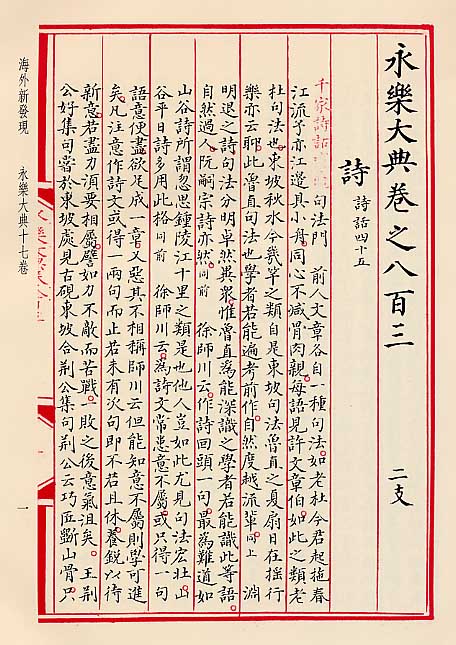 永樂大典卷之八百三
二支
詩
詩話四十五
千家詩話
句法門
前人文章各自一種句法如老杜今君起柂春
江流予亦江邊具小舟同心不減骨肉親每語見許文章伯如此之類老
杜句法也東坡秋水今幾竿之類自是東坡句法魯直之夏扇日在搖行
樂亦云聊此魯直句法也學者若能遍考前作自然度越流輩同上
淵
明退之詩句法分明卓然異衆惟魯直爲能深識之學者若能識此等語
自然過人阮嗣宗詩亦然同前
徐師川云作詩回頭一句最爲難道如
山谷詩所謂忽思鍾陵江十里之類是也他人豈如此尤見句法宏壯山
谷平日詩多用此格同前
徐師川云爲詩文常患意不屬或只得一句
語意便盡欲足成一章又惡其不相稱師川云但能知意不屬則學可進
矣凡注意作詩文或得一兩句而止若未有次句即不若且休養銳以待
新意若盡力須要相屬譬如力不敵而苦戰一敗之後意氣沮矣
王荆
公好集句嘗於東坡處見古硯東坡合荆公集句荆公云巧匠斲山骨只
海外新發現
永樂大典十七卷
一